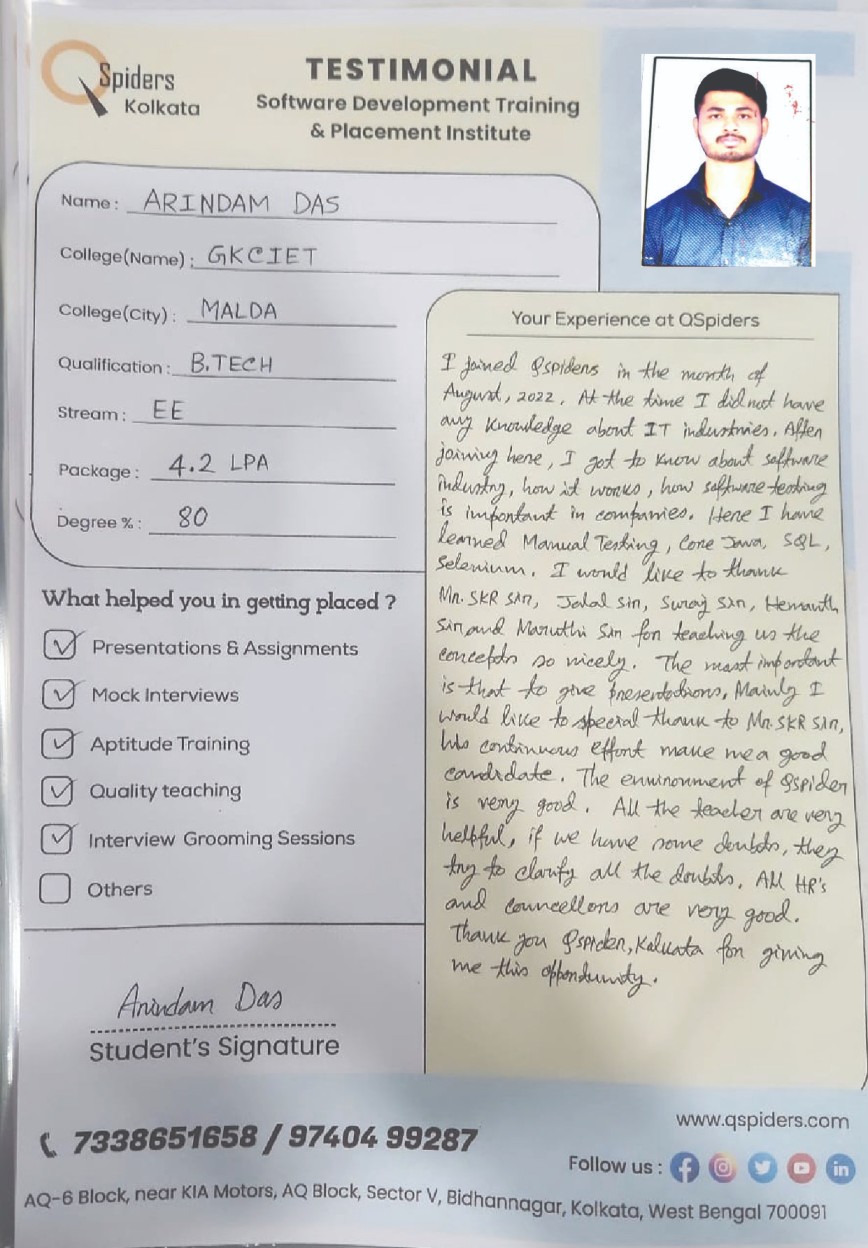 QSpiders
Kolkata
TESTIMONIAL
Software Development Training
& Placement Institute
Name : ARINDAM DAS
College(Name) : GKCIET
College(City) : MALDA
Qualification : B.TECH
Stream : EE
Package : 4.2 LPA
Degree % : 80
What helped you in getting placed ?
Presentations & Assignments
Mock Interviews
Aptitude Training
Quality teaching
Interview Grooming Sessions
Others
Arindam Das
Student's Signature
Your Experience at QSpiders
I joined Qspiders in the month of
August, 2022. At the time I did not have
any knowledge about IT industries. After
joining here, I got to know about software
industry, how it works, how software testing
is important in companies. Here I have
learned Manual Testing, Core Java, SQL,
Selenium. I would like to thank
Mr. SKR sir, Jalal sir, Suraj sir, Hemanth
Sir and Maruthi Sir for teaching us the
concepts so nicely. The most important
is that to give presentations, Mainly I
would like to special thank to Mr. SKR sir,
his continuous effort make me a good
candidate. The environment of Qspider
is very good. All the teacher are very
helpful, if we have some doubts, they
try to clarify all the doubts. All HR's
and councellors are very good.
Thank you Qspider, Kolkata for giving
me this opportunity.
7338651658 / 97404 99287
www.qspiders.com
Follow us :
AQ-6 Block, near KIA Motors, AQ Block, Sector V, Bidhannagar, Kolkata, West Bengal 700091